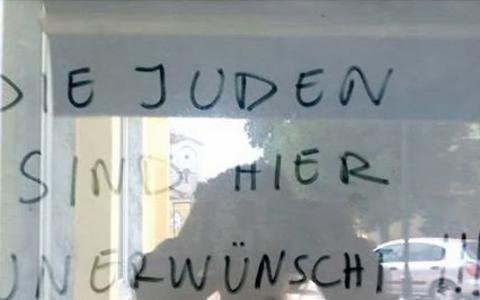 DIE JUDEN
SIND HIER
UNERWÜNSCHT !!!